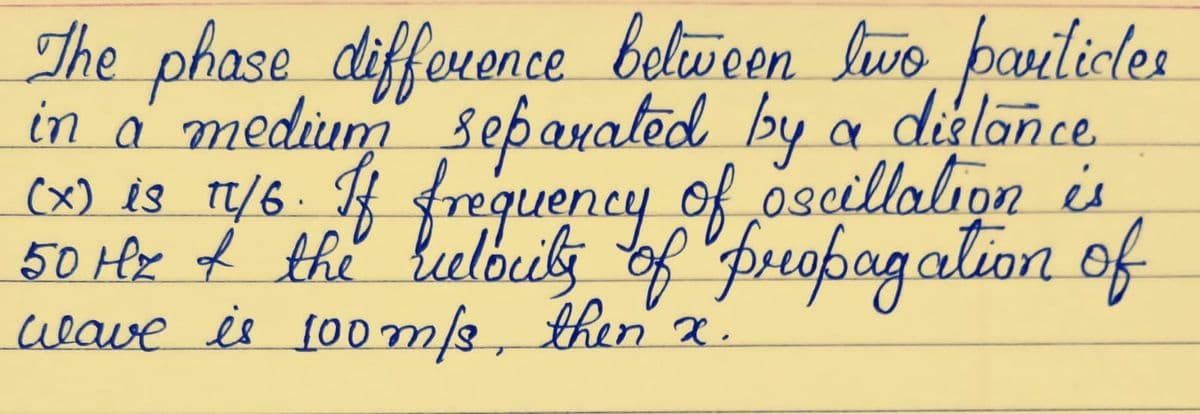 The phase difference between two particles
in a medium separated by a distance
(x) is π/6. If frequency of oscillation is
50 Hz & the velocity of propagation of
wave is 100 m/s, then x.